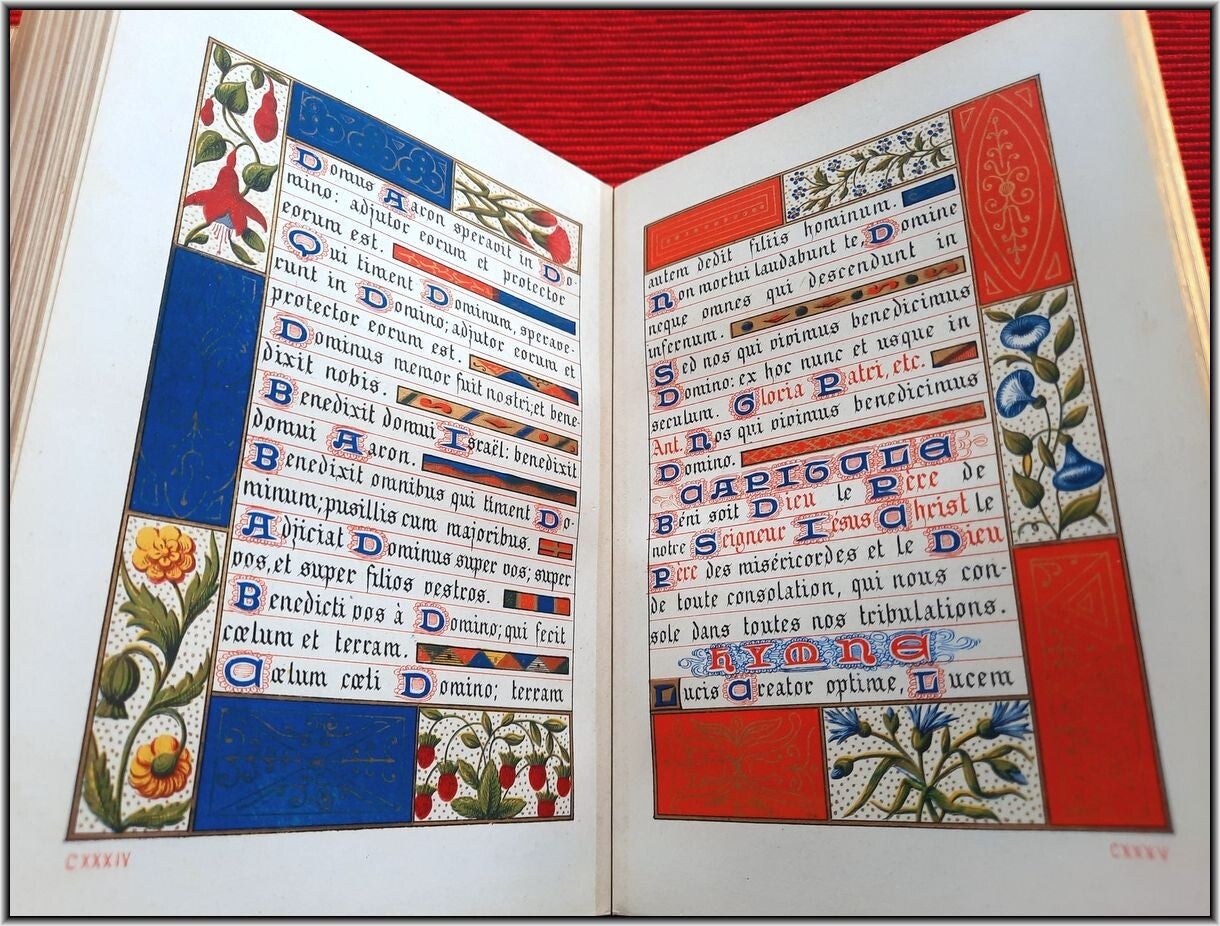 Domus Aaron speravit in Do-
mino: adjutor eorum et protector
eorum est.
Qui timent Dominum, sperave-
runt in Domino; adjutor eorum et
protector eorum est.
Dominus memor fuit nostri; et bene-
dixit nobis.
Benedixit domui Israël: benedixit
domui Aaron.
Benedixit omnibus qui timent Do-
minum; pusillis cum majoribus.
Adjiciat Dominus super vos; super
vos, et super filios vestros.
Benedicti vos à Domino; qui fecit
cœlum et terram.
Cœlum cœli Domino; terram
CXXXIV
autem dedit filiis hominum.
Non mortui laudabunt te, Domine
neque omnes qui descendunt in
infernum.
Sed nos qui vivimus benedicimus
Domino: ex hoc nunc et usque in
seculum. Gloria Patri, etc.
Ant. Nos qui vivimus benedicimus
Domino.
CAPITULE
Béni soit Dieu le Père de
notre Seigneur Jésus Christ le
Père des miséricordes et le Dieu
de toute consolation, qui nous con-
sole dans toutes nos tribulations.
HYMNE
Lucis Creator optime, Lucem
CXXXV